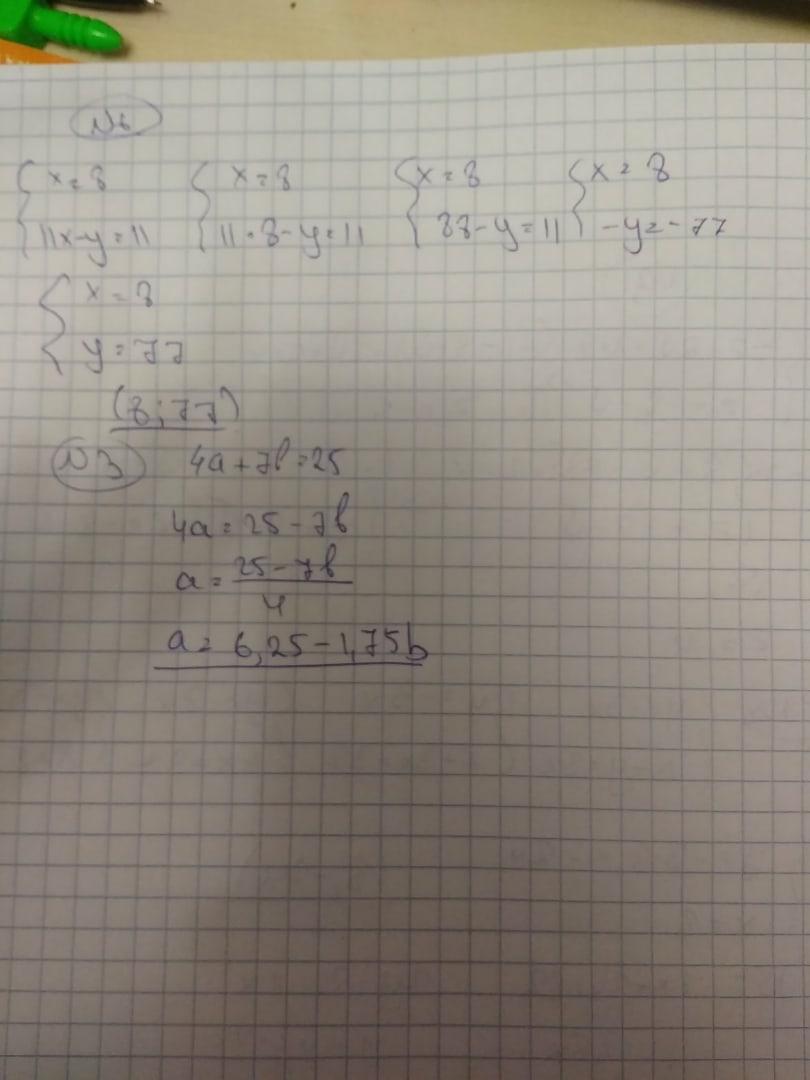 №6
{x=8 {x=8 {x=8 {x=8
11x-y=11 11·8-y=11 88-y=11 -y=-77
{x=8
y=77
(8;77)
№3 4a+7b=25
4a=25-7b
a=25-7b
4
a=6,25-1,75b